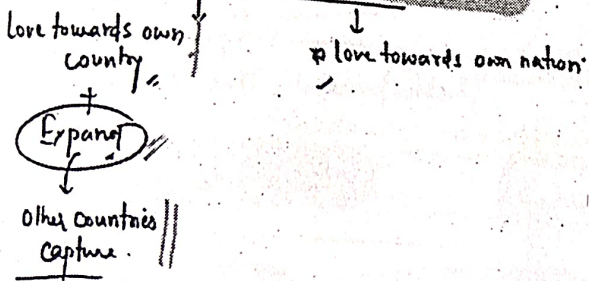 Love towards own
country
+
Expand
other countries
capture.
love towards own nation